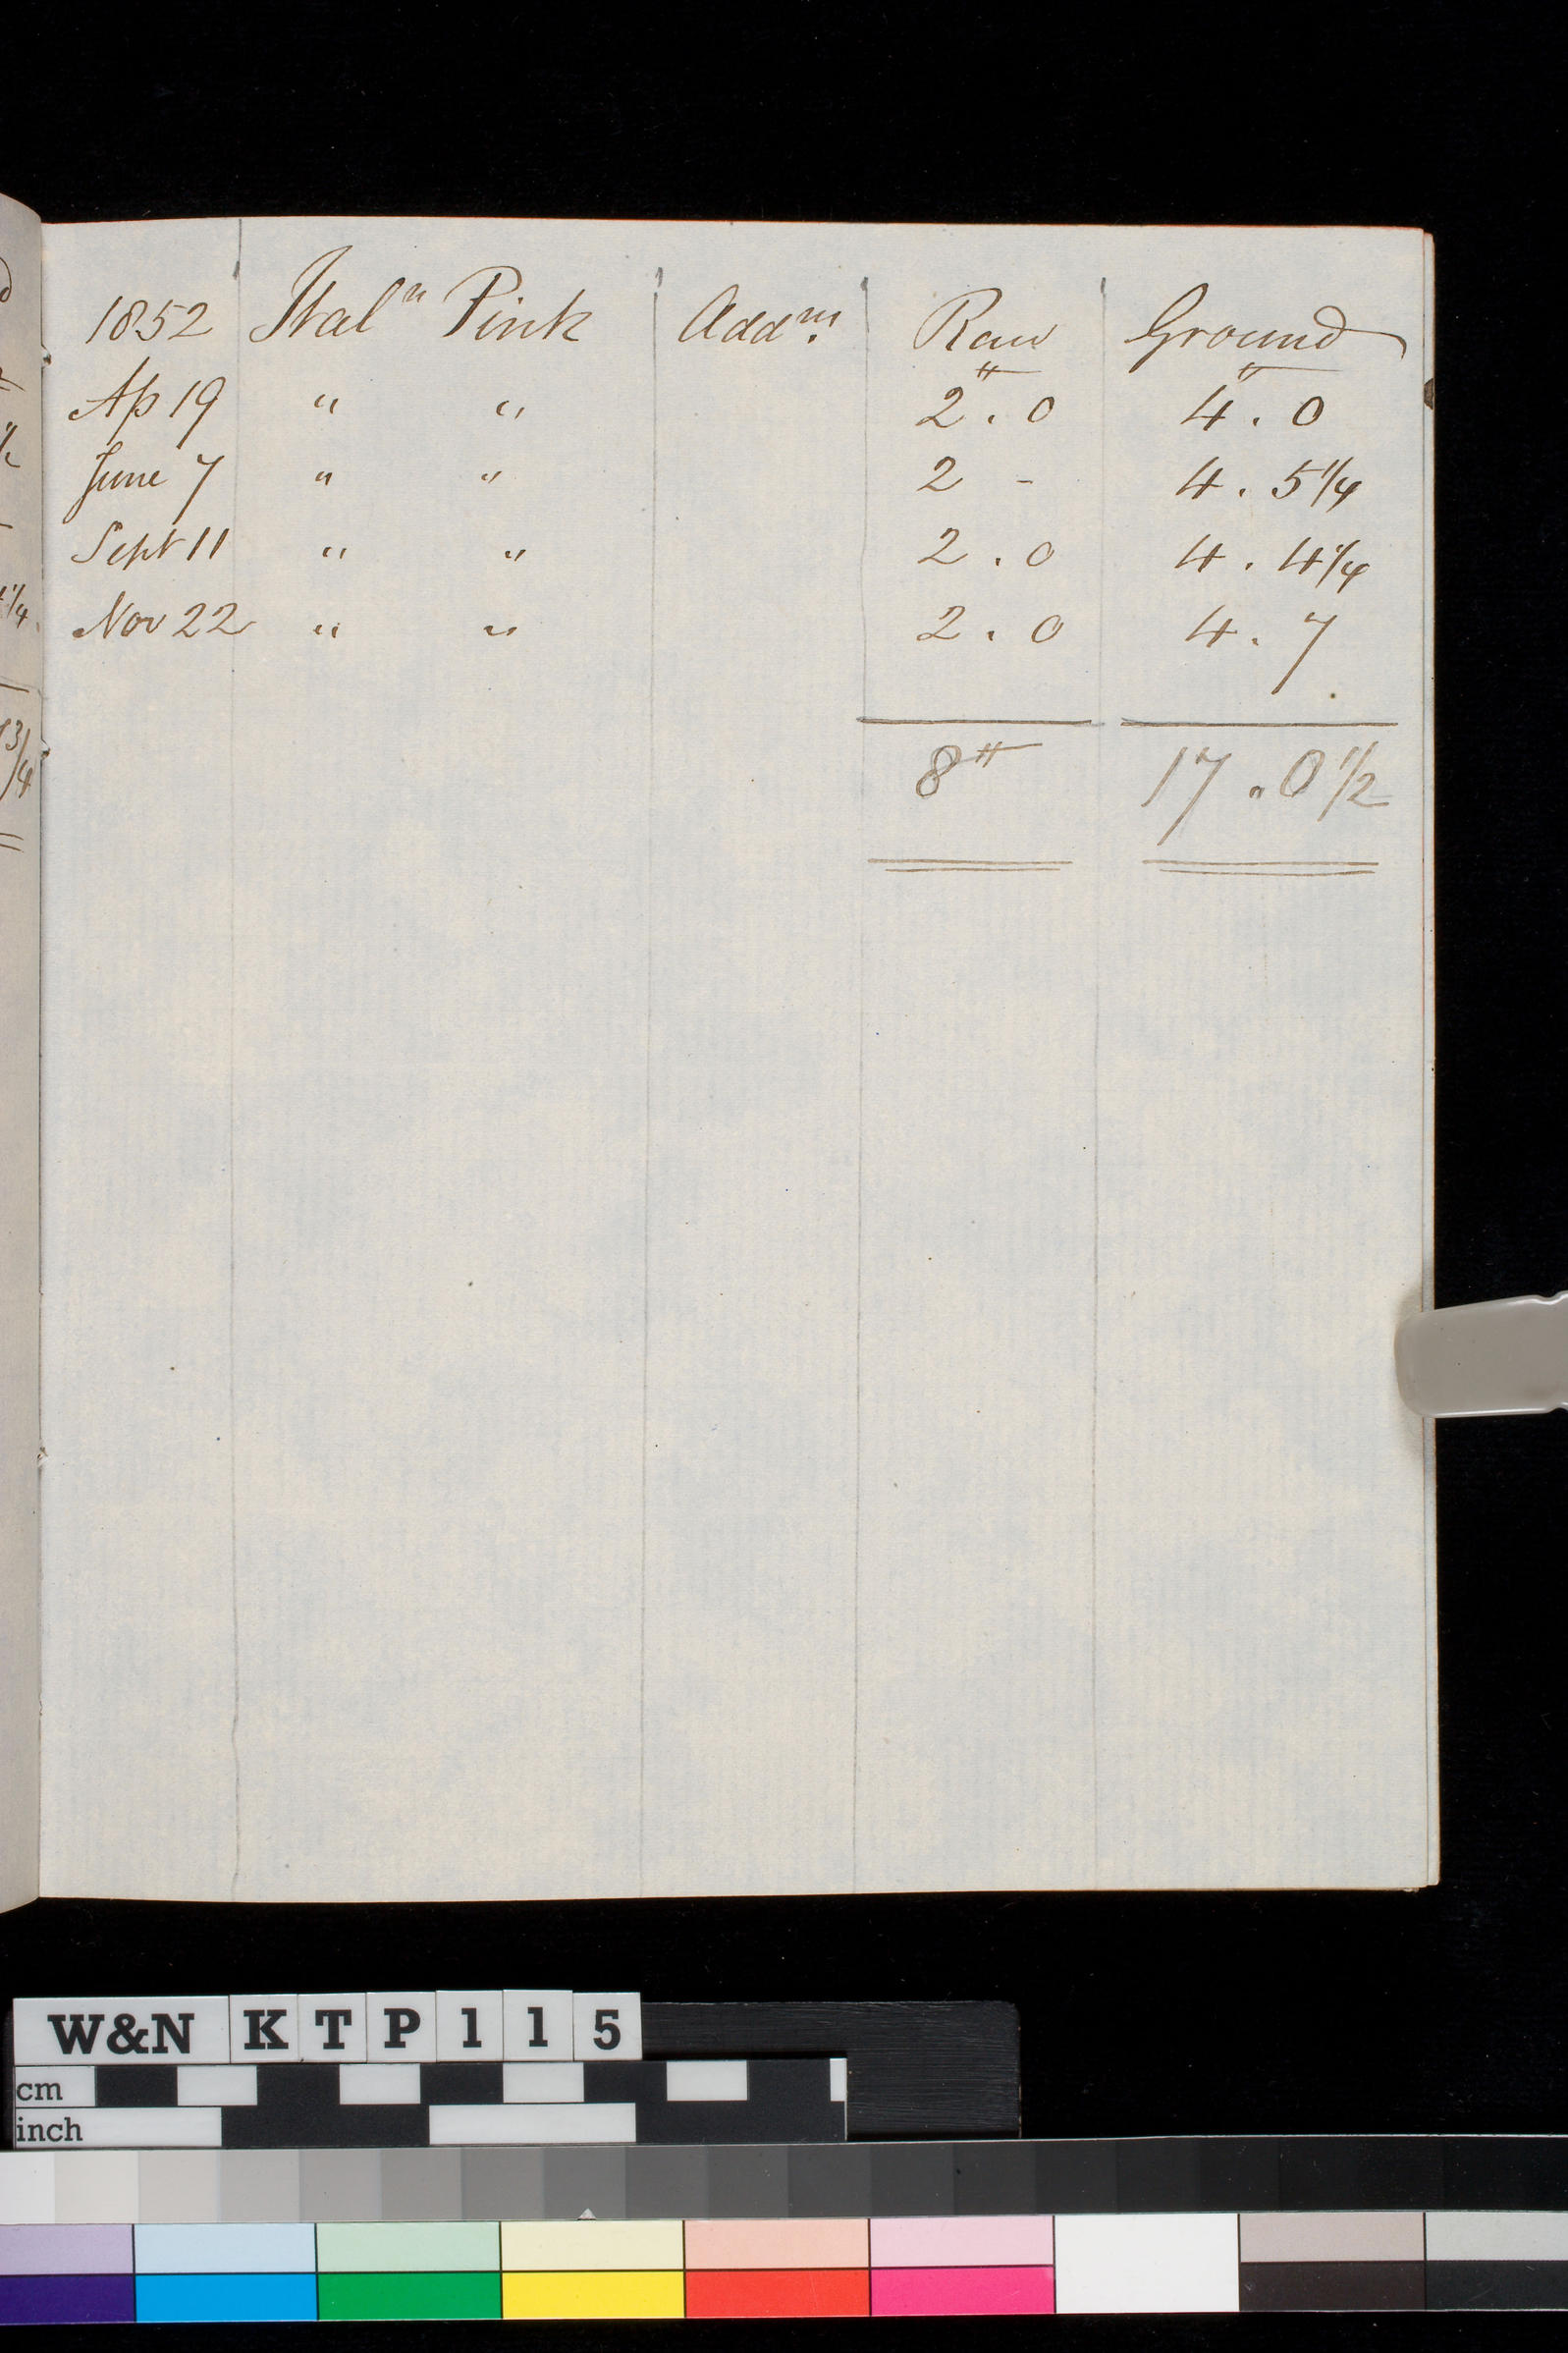 1852 Ital^n Pink Add^ns. Raw Ground
Ap 19 " " 2 . 0 4 . 0
June 7 " " 2 - 4 . 5 1/4
Sept 11 " " 2 . 0 4 . 4 1/4
Nov 22 " " 2 . 0 4 . 7
8 17 . 0 1/2
W&N KTP115
cm
inch